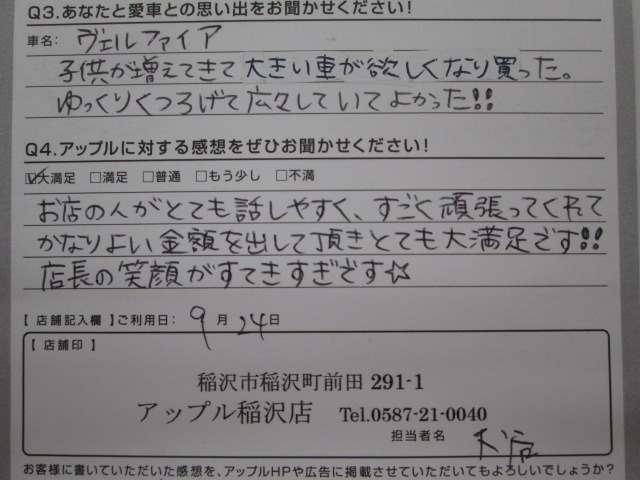 Q3.あなたと愛車との思い出をお聞かせください!
車名: ヴェルファイア
子供が増えてきて大きい車が欲しくなり買った。
ゆっくりくつろげて広々していてよかった!!
Q4.アップルに対する感想をぜひお聞かせください!
☑大満足 □満足 □普通 □もう少し □不満
お店の人がとても話しやすく、すごく頑張ってくれて
かなりよい金額を出して頂きとても大満足です!!
店長の笑顔がすてきすぎです☆
【 店舗記入欄 】ご利用日: 9月24日
【 店舗印 】
稲沢市稲沢町前田 291-1
アップル稲沢店 Tel.0587-21-0040
担当者名 大沼
お客様に書いていただいた感想を、アップルHPや広告に掲載させていただいてもよろしいでしょうか?